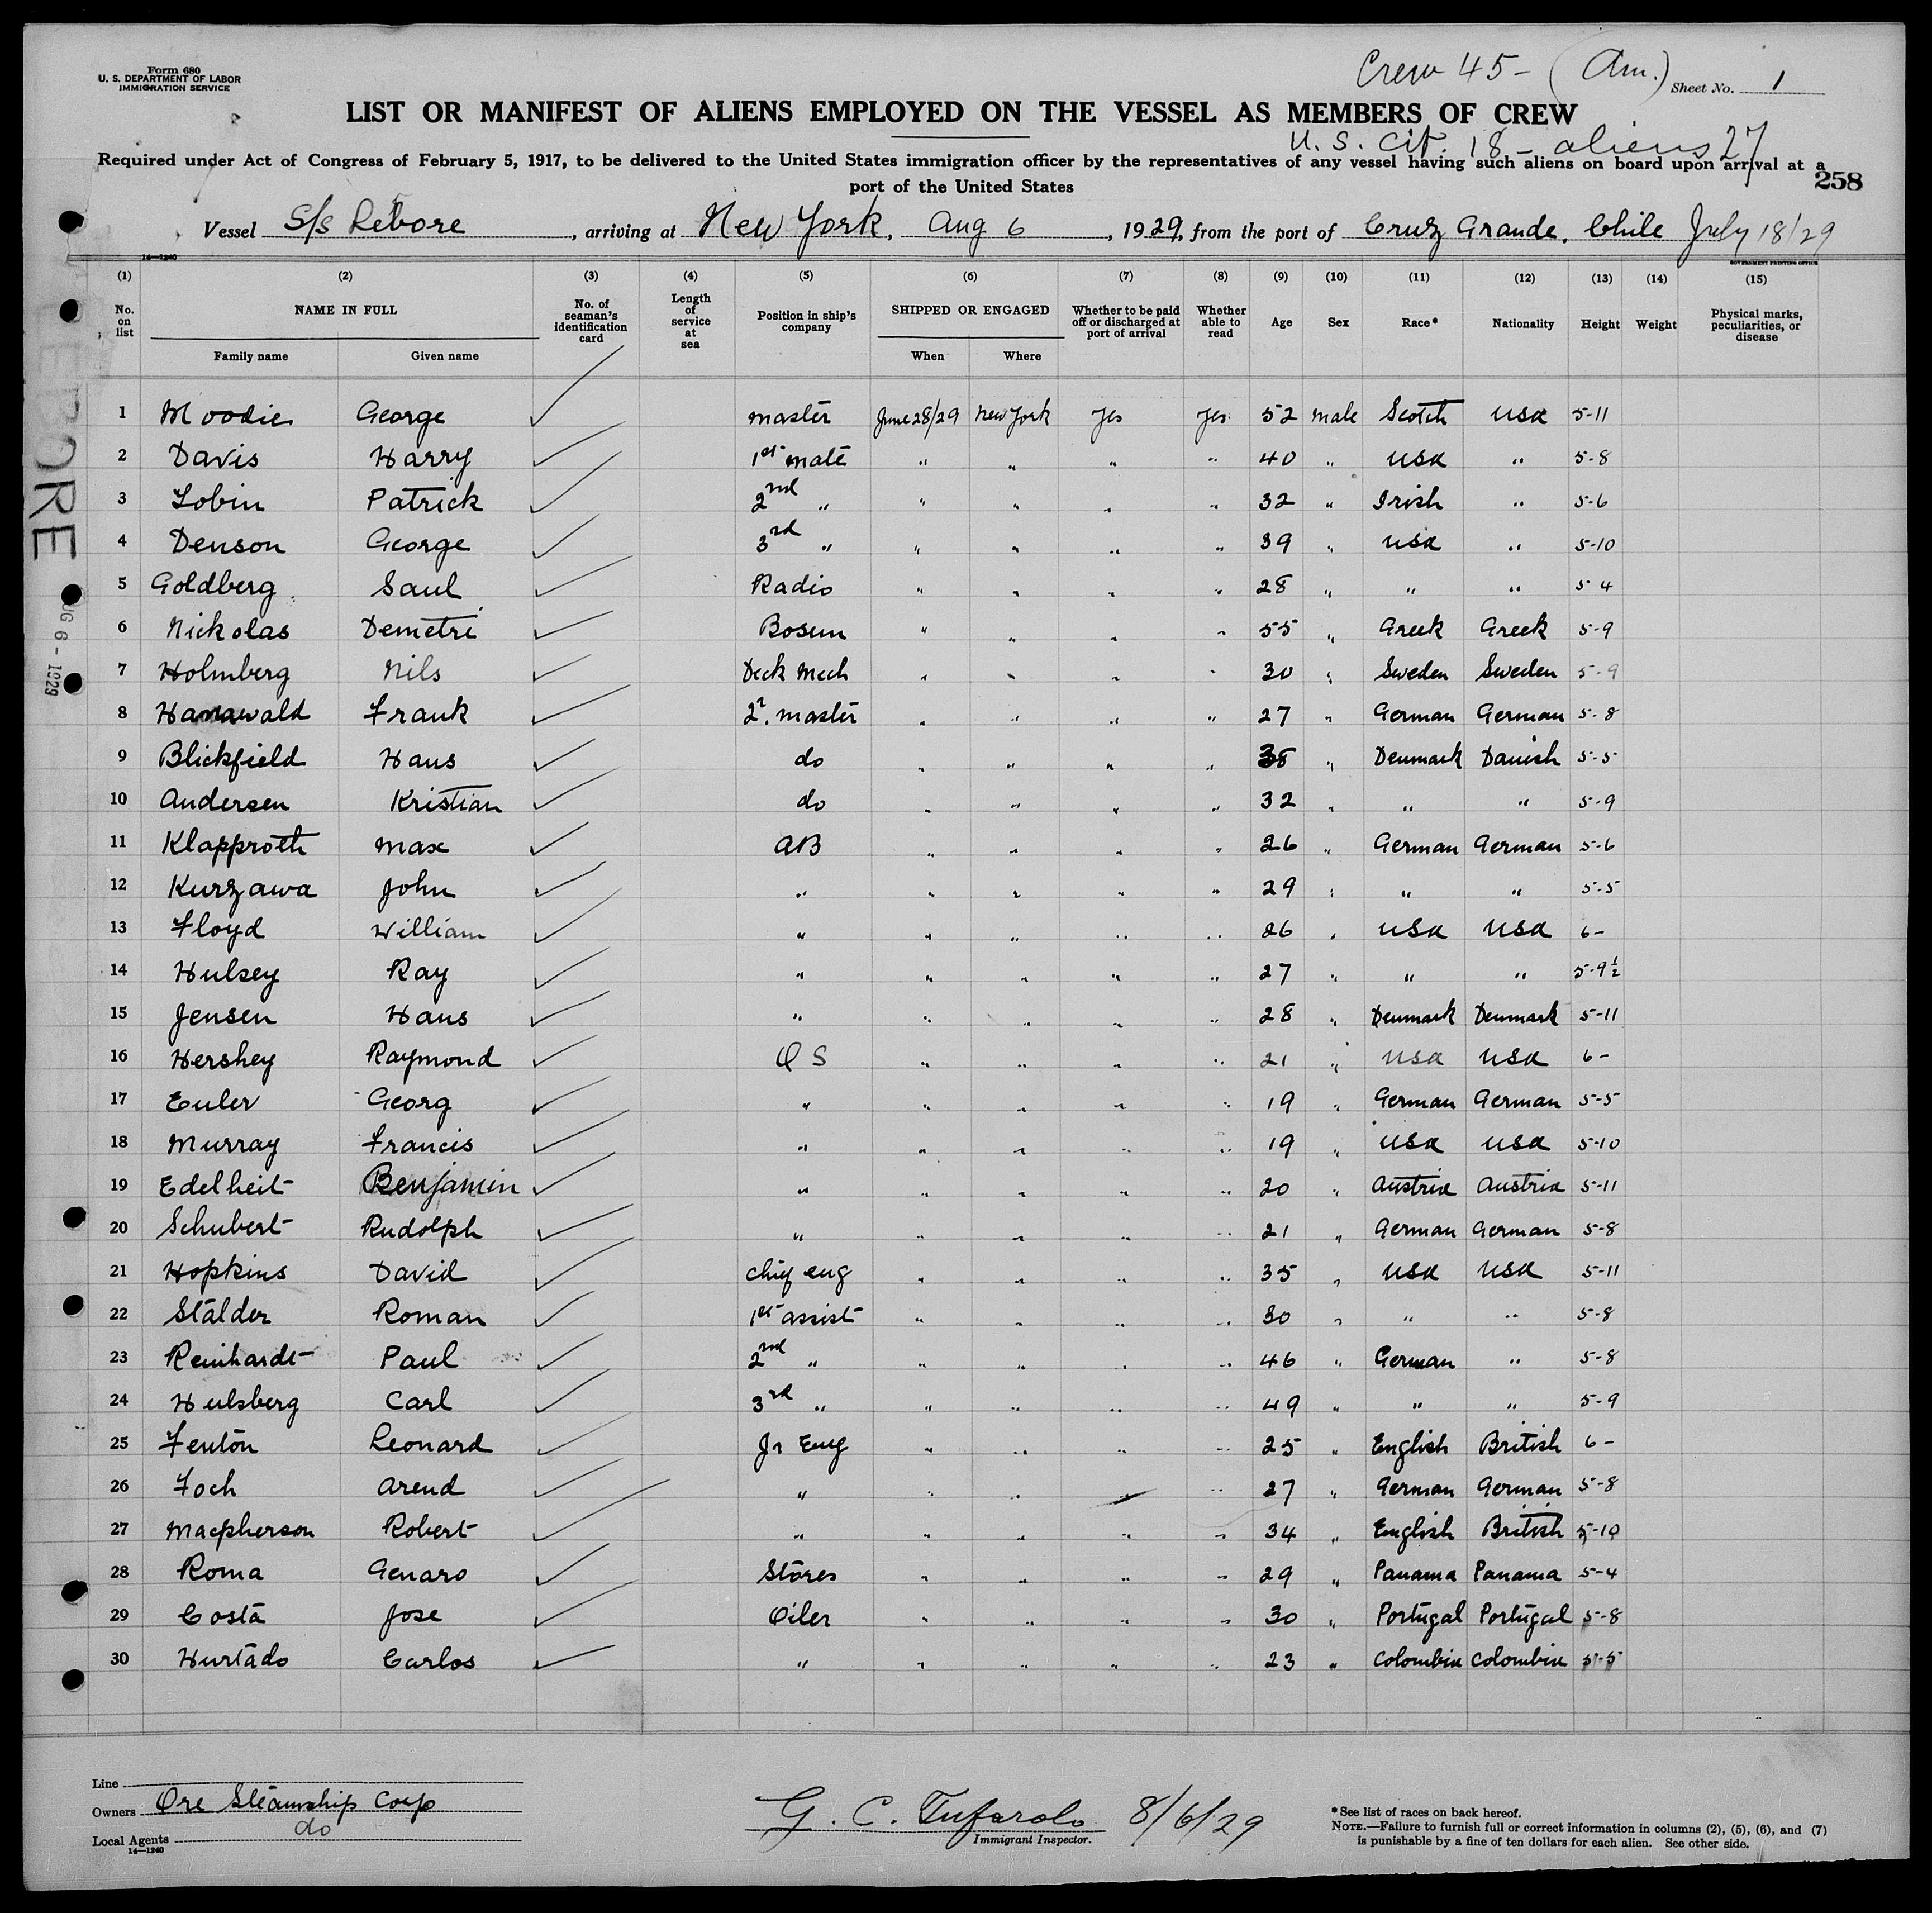 Form 680
U. S. DEPARTMENT OF LABOR
IMMIGRATION SERVICE
Crew 45 - (Am.)
Sheet No. 1
LIST OR MANIFEST OF ALIENS EMPLOYED ON THE VESSEL AS MEMBERS OF CREW
U. S. Cit. 18 - aliens 27
Required under Act of Congress of February 5, 1917, to be delivered to the United States immigration officer by the representatives of any vessel having such aliens on board upon arrival at a
port of the United States
258
Vessel S/s Lebore, arriving at New York, Aug 6, 1929, from the port of Cruz Grande, Chile July 18/29
14—1240 GOVERNMENT PRINTING OFFICE
(1) (2) (3) (4) (5) (6) (7) (8) (9) (10) (11) (12) (13) (14) (15)
No. on list NAME IN FULL Family name Given name No. of seaman's identification card Length of service at sea Position in ship's company SHIPPED OR ENGAGED When Where Whether to be paid off or discharged at port of arrival Whether able to read Age Sex Race* Nationality Height Weight Physical marks, peculiarities, or disease
1 Moodie George ✓ master June 28/29 New York Yes Yes 52 male Scotch USA 5-11
2 Davis Harry ✓ 1st mate " " " " 40 " USA " 5-8
3 Tobin Patrick ✓ 2nd " " " " " 32 " Irish " 5-6
4 Denson George ✓ 3rd " " " " " 39 " USA " 5-10
5 Goldberg Saul ✓ Radio " " " " 28 " " " 5 4
6 Nickolas Demetri ✓ Bosun " " " " 55 " Greek Greek 5-9
7 Holmberg Nils ✓ Deck Mech " " " " 30 " Sweden Sweden 5-9
8 Hanawald Frank ✓ 2. master " " " " 27 " German German 5-8
9 Blickfield Hans ✓ do " " " " 38 " Denmark Danish 5-5
10 Andersen Kristian ✓ do " " " " 32 " " " 5-9
11 Klapproth Max ✓ AB " " " " 26 " German German 5-6
12 Kurzawa John ✓ " " " " " 29 " " " 5-5
13 Floyd William ✓ " " " " " 26 " USA USA 6-
14 Hulsey Ray ✓ " " " " " 27 " " " 5-9½
15 Jensen Hans ✓ " " " " " 28 " Denmark Denmark 5-11
16 Hershey Raymond ✓ O S " " " " 21 " USA USA 6-
17 Euler Georg ✓ " " " " " 19 " German German 5-5
18 Murray Francis ✓ " " " " " 19 " USA USA 5-10
19 Edelheit Benjamin ✓ " " " " " 20 " Austria Austria 5-11
20 Schubert Rudolph ✓ " " " " " 21 " German German 5-8
21 Hopkins David ✓ Chief eng " " " " 35 " USA USA 5-11
22 Stalder Roman ✓ 1st assist " " " " 30 " " " 5-8
23 Reinhardt Paul ✓ 2nd " " " " " 46 " German " 5-8
24 Hulsberg Carl ✓ 3rd " " " " " 49 " " " 5-9
25 Fenton Leonard ✓ Jr Eng " " " " 25 " English British 6-
26 Foch Arend ✓ " " " " " 27 " German German 5-8
27 Macpherson Robert ✓ " " " " " 34 " English British 5-10
28 Roma Genaro ✓ Stores " " " " 29 " Panama Panama 5-4
29 Costa Jose ✓ Oiler " " " " 30 " Portugal Portugal 5-8
30 Hurtado Carlos ✓ " " " " " 23 " Colombia Colombia 5-5
LEBORE
AUG 6 - 1929
Line
Owners Ore Steamship Corp
Local Agents do
14—1240
G. C. Tufarolo 8/6/29
Immigrant Inspector.
*See list of races on back hereof.
NOTE.—Failure to furnish full or correct information in columns (2), (5), (6), and (7)
is punishable by a fine of ten dollars for each alien. See other side.